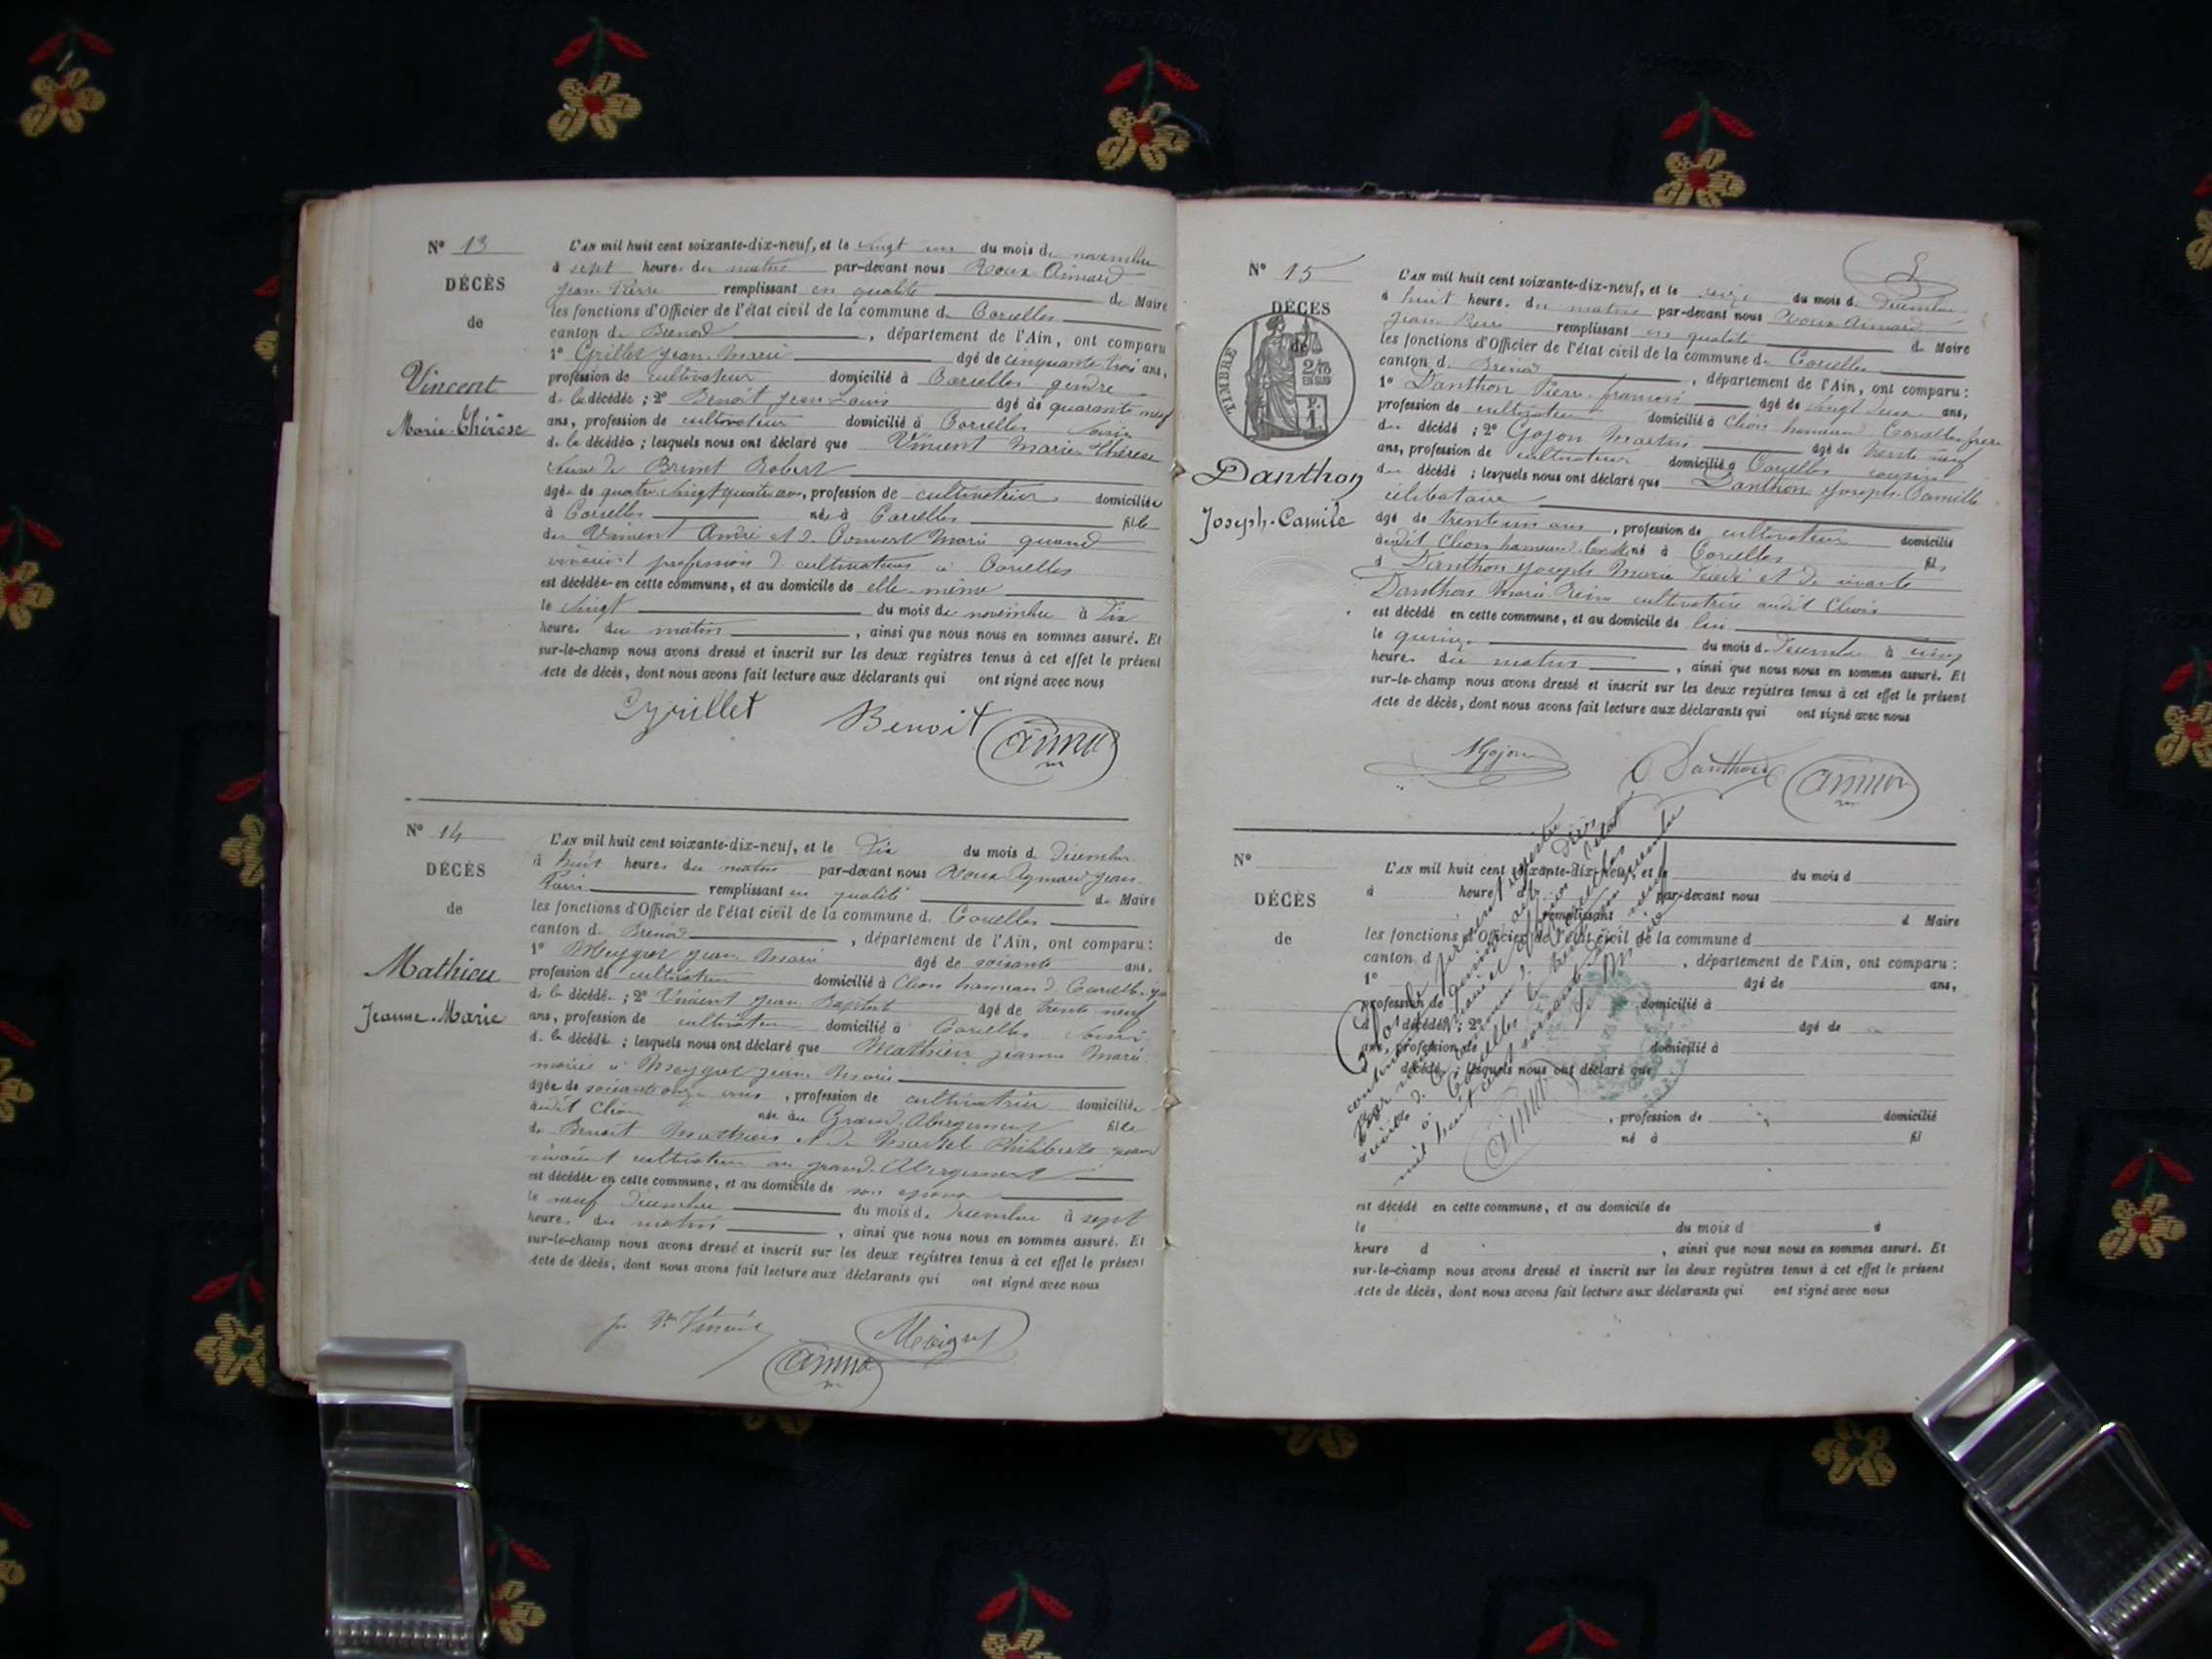 N° 13
DÉCÈS
de
Vincent
Marie-Thérèse
L'AN mil huit cent soixante-dix-neuf, et le vingt un du mois de novembre
à sept heures du matin par-devant nous Roux Aimard
Jean Pierre remplissant en qualité de Maire
les fonctions d'Officier de l'état civil de la commune de Corcelles
canton de Brenod, département de l'Ain, ont comparu
1° Grillet Jean Marie âgé de cinquante trois ans,
profession de cultivateur domicilié à Corcelles gendre
de la décédée ; 2° Benoit Jean Louis âgé de quarante neuf
ans, profession de cultivateur domicilié à Corcelles voisin
de la décédée ; lesquels nous ont déclaré que Vincent Marie Thérèse
veuve de Brunet Robert
âgée de quatre vingt quatre ans, profession de cultivateur domiciliée
à Corcelles née à Corcelles fille
de Vincent André et de Convert Marie quand
vivaient profession de cultivateurs à Corcelles
est décédée en cette commune, et au domicile de elle-même
le vingt du mois de novembre à dix
heures du matin, ainsi que nous nous en sommes assuré. Et
sur-le-champ nous avons dressé et inscrit sur les deux registres tenus à cet effet le présent
Acte de décès, dont nous avons fait lecture aux déclarants qui ont signé avec nous
Grillet Benoit
N° 14
DÉCÈS
de
Mathieu
Jeanne-Marie
L'AN mil huit cent soixante-dix-neuf, et le dix du mois d décembre
à huit heures du matin par-devant nous Roux Aymard Jean
remplissant en qualité de Maire
les fonctions d'Officier de l'état civil de la commune d. Corcelles
canton d. Brenod, département de l'Ain, ont comparu :
1° Meygret Jean Marie âgé de soixante ans,
profession de cultivateur domicilié à Cléon hameau d. Corcelles
d. la décédée ; 2° Vincent Jean Baptiste âgé de trente neuf
ans, profession de cultivateur domicilié à Corcelles voisin
d. la décédée ; lesquels nous ont déclaré que Mathieu Jeanne Marie
mariée à Meygret Jean Marie
âgée de soixante onze ans, profession de cultivatrice domiciliée
audit Cléon née au Grand Abergement fille
de Benoit Mathieu et de Philiberte quand
vivaient cultivateurs au grand Abergement
est décédée en cette commune, et au domicile de son époux
le neuf décembre du mois d. décembre à sept
heures du matin, ainsi que nous nous en sommes assuré. Et
sur-le-champ nous avons dressé et inscrit sur les deux registres tenus à cet effet le présent
Acte de décès, dont nous avons fait lecture aux déclarants qui ont signé avec nous
Vincent
N° 15
DÉCÈS
de
TIMBRE
2/10
EN SUS
P.
1.
Danthon
Joseph-Camile
L'AN mil huit cent soixante-dix-neuf, et le seize du mois d. décembre
à huit heures du matin par-devant nous Roux Aimard
Jean Pierre remplissant en qualité de Maire
les fonctions d'Officier de l'état civil de la commune d. Corcelles
canton d. Brenod, département de l'Ain, ont comparu :
1° Danthon Pierre françois âgé de vingt deux ans,
profession de cultivateur domicilié à Cléon hameau Corcelles frère
du décédé ; 2° Gojon Martin âgé de trente neuf
ans, profession de cultivateur domicilié à Corcelles cousin
du décédé ; lesquels nous ont déclaré que Danthon Joseph Camille
célibataire
âgé de trente un ans, profession de cultivateur domicilié
audit Cléon hameau né à Corcelles fils
d Danthon Joseph Marie décédé et de vivante
Danthon Marie Reine cultivatrice audit Cléon
est décédé en cette commune, et au domicile de lui
le quinze du mois d. décembre à cinq
heures du matin, ainsi que nous nous en sommes assuré. Et
sur-le-champ nous avons dressé et inscrit sur les deux registres tenus à cet effet le présent
Acte de décès, dont nous avons fait lecture aux déclarants qui ont signé avec nous
Gojon Danthon
N°
DÉCÈS
de
L'AN mil huit cent soixante-dix-neuf, et le du mois d
à heure d par-devant nous
remplissant d Maire
les fonctions d'Officier de l'état civil de la commune d
canton d , département de l'Ain, ont comparu :
1° âgé de ans,
profession de domicilié à
d décédé ; 2° âgé de
ans, profession de domicilié à
d décédé ; lesquels nous ont déclaré que
, profession de domicilié
né à fil
est décédé en cette commune, et au domicile de
le du mois d à
heure d , ainsi que nous nous en sommes assuré. Et
sur-le-champ nous avons dressé et inscrit sur les deux registres tenus à cet effet le présent
Acte de décès, dont nous avons fait lecture aux déclarants qui ont signé avec nous